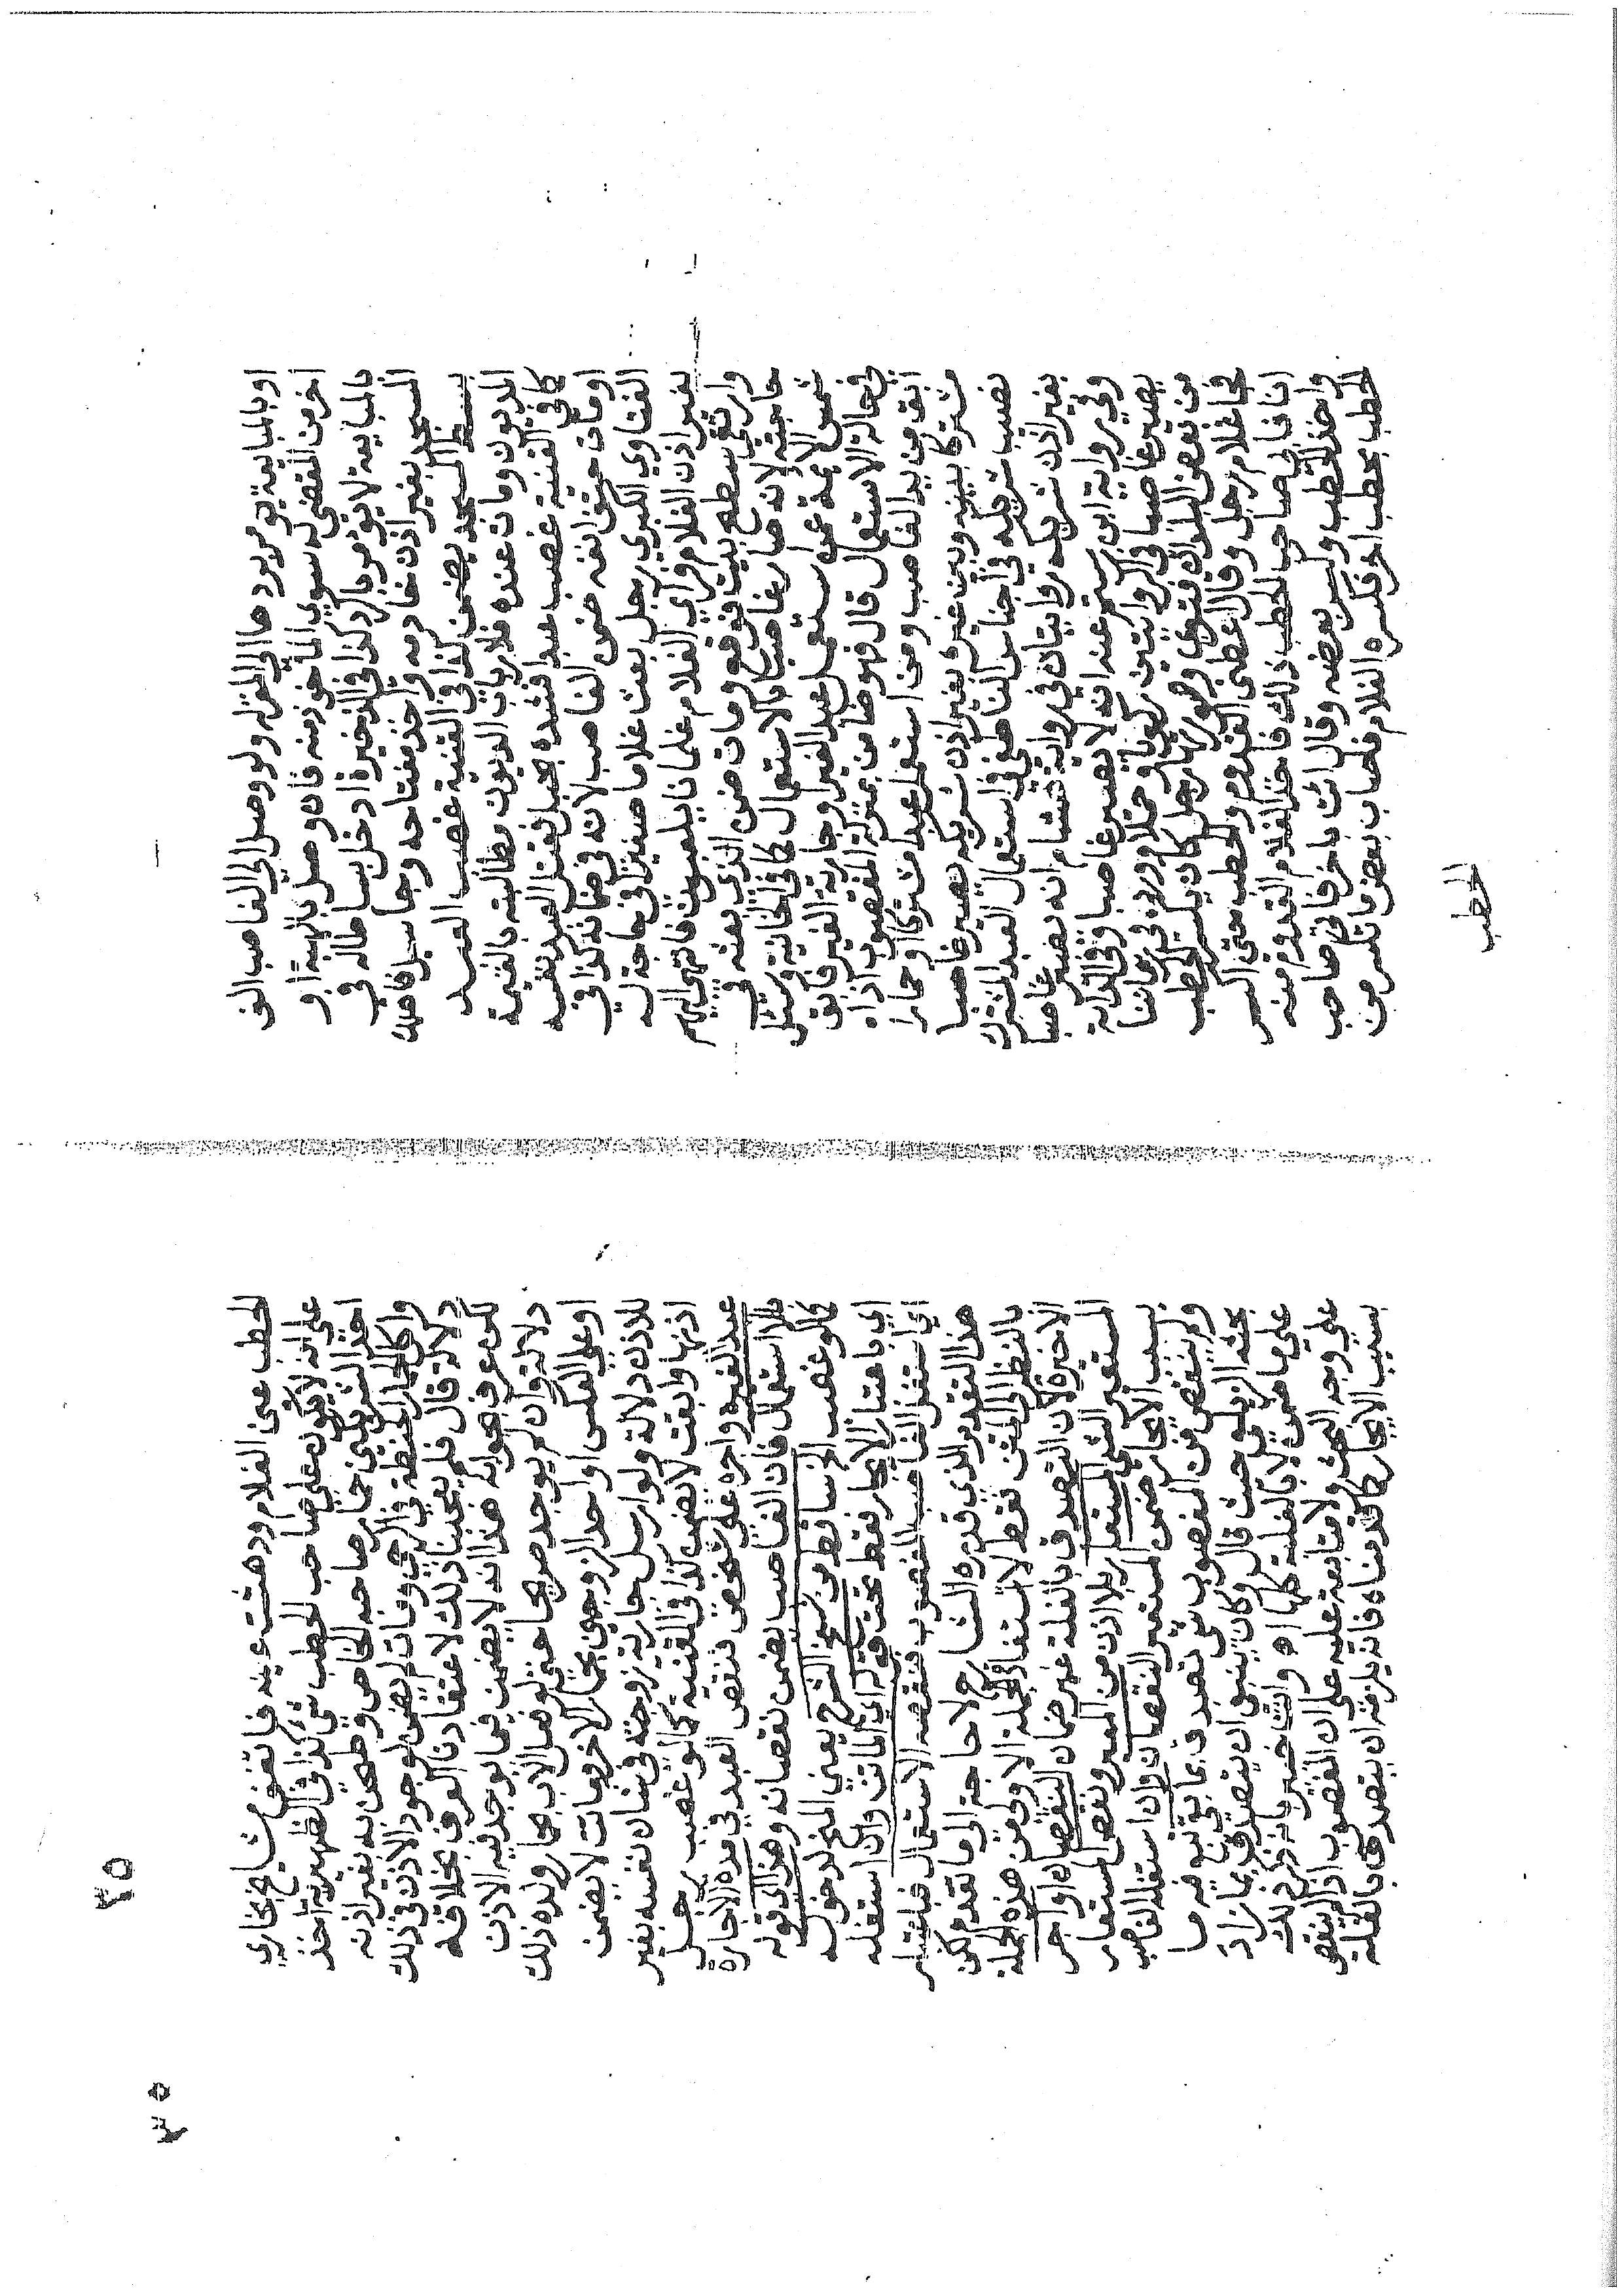 او بالمبايعة يؤمر برد ها الى المنزل ولو وصل الى الغاصب الف
اخر من المقضي له سوي المأخوذ منه فانه وصل بالهبة او
بالمبايعة لا يؤمر بالرد كذا في الذخيرة ادخل بساطاله في
المسجد بغير اذن خادمه واخذ مفتاحه وجا سيل فاهلك
بسط المسجد يضمن كذا في القنية غصب العبد
المديون ومات عنده فلارباب الديون مطالبته بالقيمة
كما في القنية غصب عبدا فشده بحبل فقتل العبد نفسه
او مات حتف انفه ضمن الغاصب لانه في ضمانه كذا في
الفتاوي الكبري رجل بعث غلاما صغيرا في حاجة له
بغير اذن الغلام فرأي الغلام غلمانا يلعبون فانتهي اليهم
وارتقي سطح بيت فوقع ومات ضمن الذي بعثه في
حاجته لانه صار غاصبا بالاستعمال كما في الخانية وسئل
شمس الائمة عمن استعمل عبد الغير او جارية الغير فابق
في حالة الاستعمال قال فهو ضامن بمنزلة المغصوب اذا
ابق من يد الغاصب ومن استعمل عبدا مشتركا او حمارا
مشتركا بينه وبين غيره بغير اذن شريكه يصير غاصبا
نصيب شريكه وفي اجناس الناطفي في استعمال العبد المشترك
بغير اذن شريكه روايتان في رواية هشام انه يصير غاصبا
وفي رواية ابن رستم عنه انه لا يصير غاصبا وفي الدابة
يصير غاصبا في الروايتين ركوبا وحملا ورد في زماننا
من بعض البلدان فتوي وصورتها رجل كان يكسر الحطب
فجا غلام رجل وقال اعطني القدوم والحطب حتي اكسر
انا فابي صاحب الحطب ذلك فاخذ الغلام القدوم منه
واخذ الحطب وكسر بعضه وقال ائت باخر فاتي صاحب
الحطب بحطب اخر فكسره الغلام فاصاب بعض ما تكسر من
الحطب
٢٥
الحطب عين الغلام وذهبت عينه فاتفق مشايخ بخاري
علي انه لا يكون علي صاحب الحطب شئ كذا في الظهيرية اخذ
احد الشريكين حمار صاحبه الخاص وطحن به بغير اذنه
واكل الحمار الحنطة في الرحي ومات لم يضمن لوجود الاذن في ذلك
دلالة قال فلم يعجبنا ذلك لاعتقادنا العرف بخلافه
لكن عرف بجوابه هذا انه لا يضمن فيما يوجد فيه الاذن
دلالة وان لم يوجد صريحا حتي لو فعل الاب بحمار ولده ذلك
او علي العكس او احد الزوجين بحمار الاخر ومات لا يضمن
للاذن دلالة ولو ارسل جارية زوجته في شان نفسه بغير
اذنها وابقت لا يضمن كذا في القنية كما لو غصب رجل
عبد الغير واجره علي شخص فنقص العبد في مدة الاجارة
بالاستعمال فان الغاصب يضمن نقصانه وهذا الي قوله
كما لو غصب الخ ساقط من نسخ الشرح يعني المنح لدخوله
اي باعتبار الايجار فقط تحت قوله اي الماتن وان استغله
اي استغل الغاصب المغصوب فنقصه الاستعمال فباعتبار
هذا التقدير الذي قدره الشارح لا حاجة الي ما تقدم لكن
بالنظر الي المتن فقط لا استفاد في الجملة الاولي من هذه الجملة
الاخيرة لان التصدق بالغلة غير ضمان النقصان او اجر
المستعير الشي المستعار بلا اذن من المعير ونقص المستعار
بسبب الايجار ضمن المستعير النقصان وان استغله الغاصب
ولم ينقص من المغصوب شئ تصدق بما بقي تبع فيه ما
بحثه الزيلعي حيث قال وكان ينبغي ان يتصدق بما زاد
علي ما ضمن لا بالغلة كلها اه وانت خبير بانه ذكر ذلك
علي وجه البحث ولا متابعة عليه علي ان المغصوب اذا لم ينقص
بسبب الايجار كما قدمناه فانه يلزمه ان يتصدق بالغلة